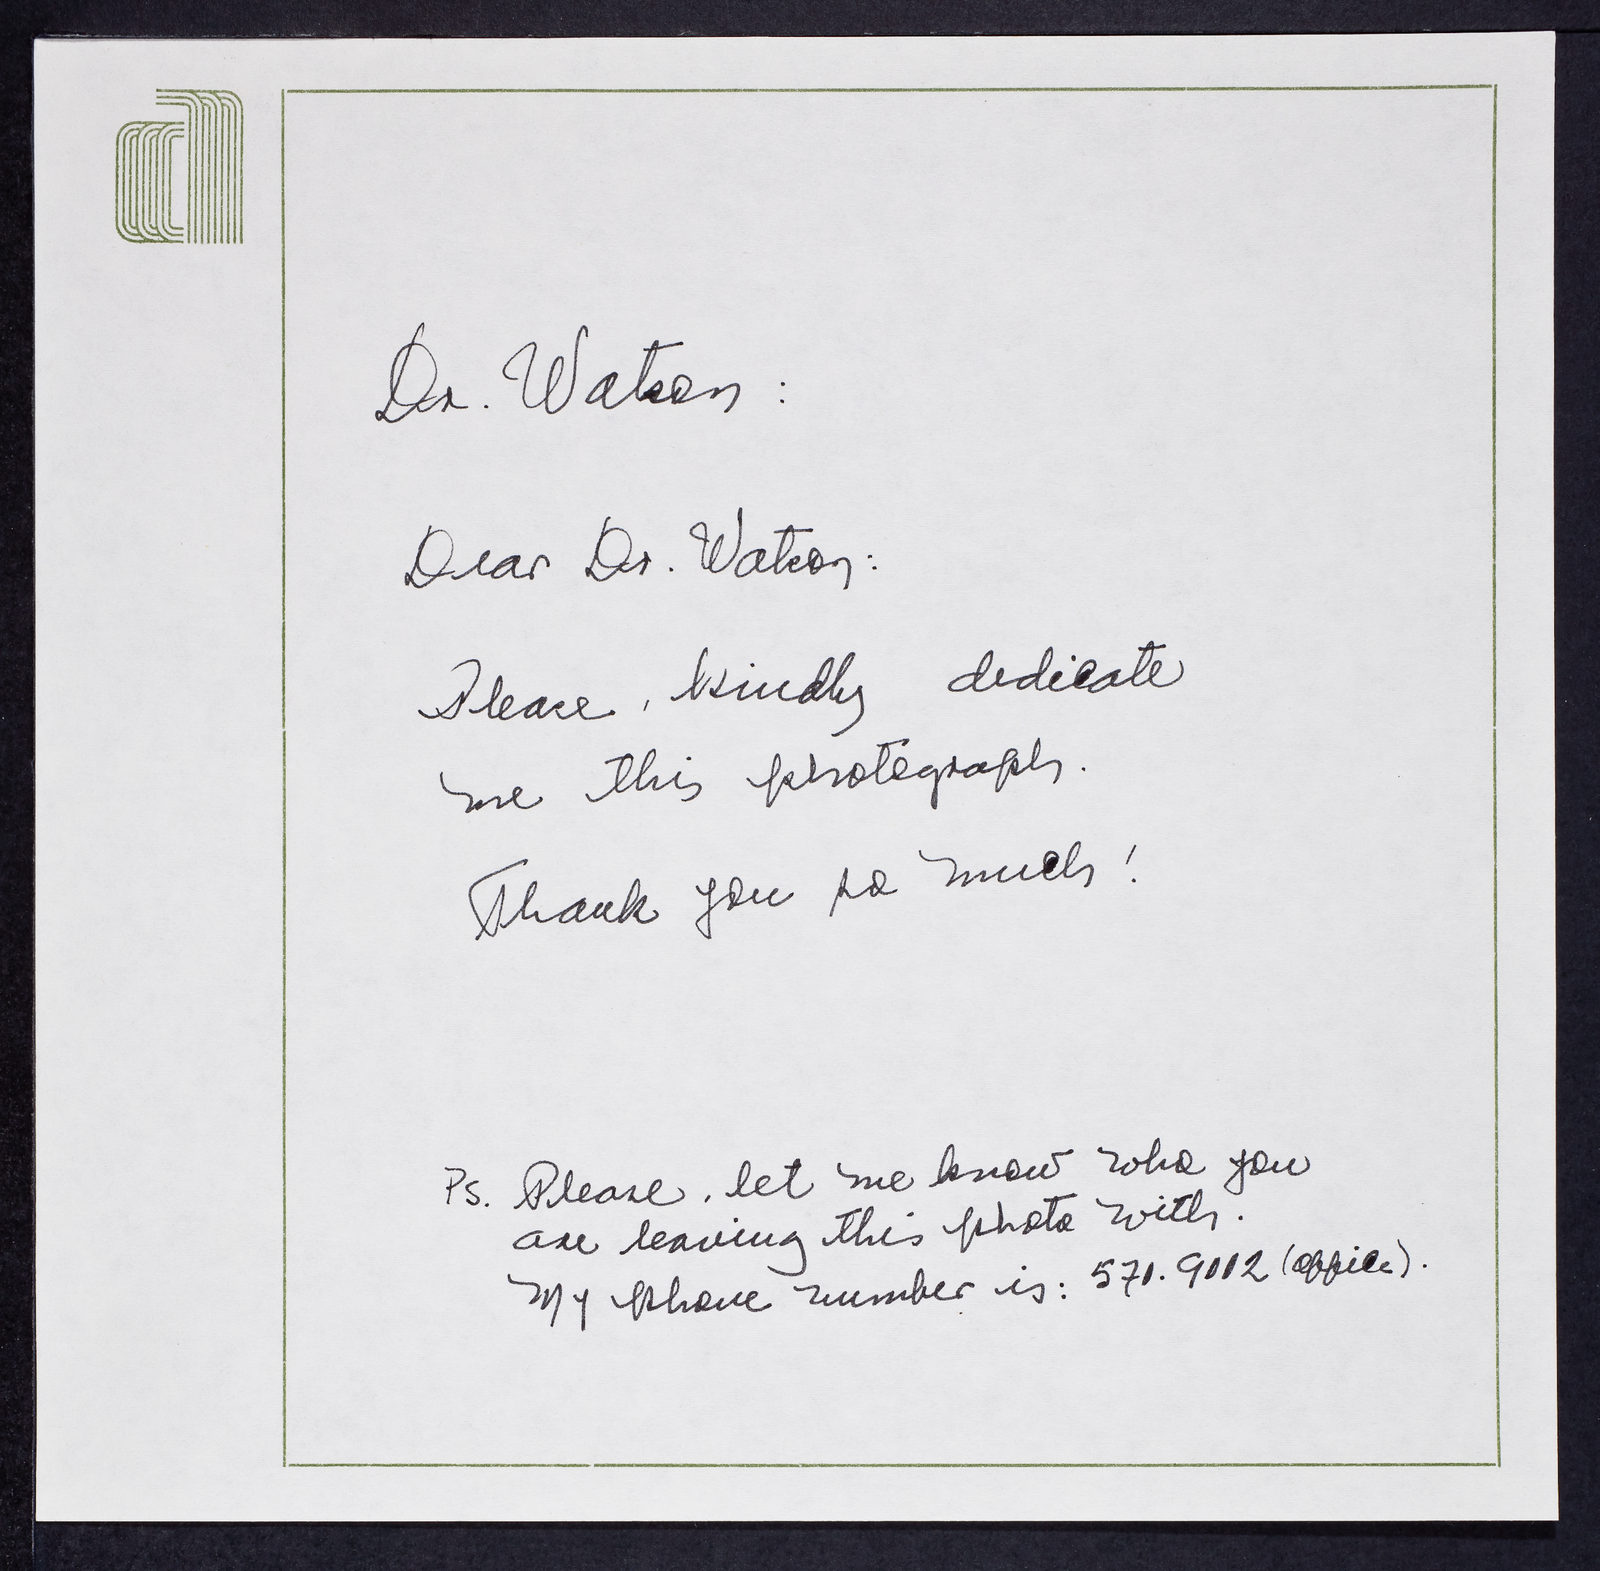 Dr. Watson:
Dear Dr. Watson:
Please, kindly dedicate
me this photograph.
Thank you so much!
Ps. Please, let me know who you
are leaving this photo with.
My phone number is: 570.9012 (office).